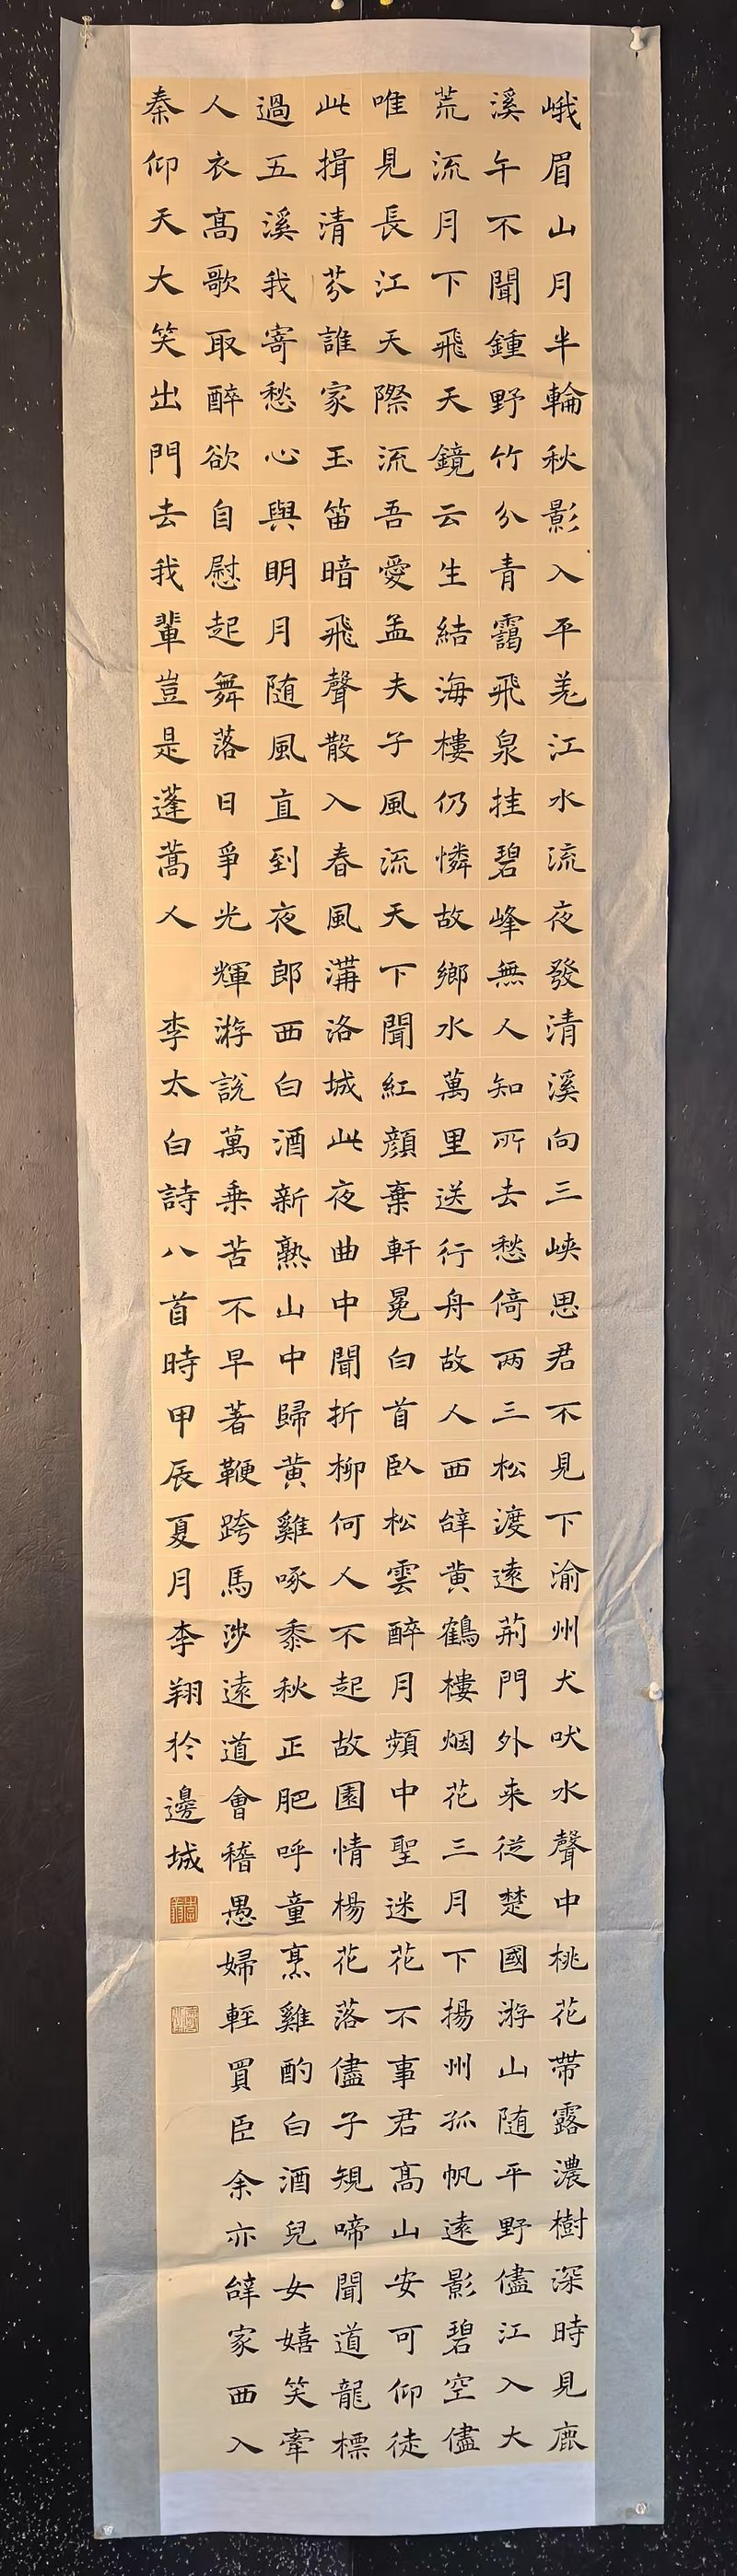 峨眉山月半輪秋影入平羌江水流夜發清溪向三峽思君不見下渝州犬吠水聲中桃花帶露濃樹深時見鹿
溪午不聞鍾野竹分青靄飛泉挂碧峰無人知所去愁倚两三松渡遠荊門外来從楚國游山随平野儘江入大
荒流月下飛天鏡云生結海樓仍憐故鄉水萬里送行舟故人西辝黄鶴樓烟花三月下揚州孤帆遠影碧空儘
唯見長江天際流吾愛孟夫子風流天下聞紅顏棄軒冕白首臥松雲醉月頻中聖迷花不事君髙山安可仰徒
此揖清芬誰家玉笛暗飛聲散入春風滿洛城此夜曲中聞折柳何人不起故園情楊花落儘子規啼聞道龍標
過五溪我寄愁心與明月随風直到夜郎西白酒新熟山中歸黄雞啄黍秋正肥呼童烹雞酌白酒兒女嬉笑牽
人衣髙歌取醉欲自慰起舞落日爭光輝游說萬乘苦不早著鞭跨馬涉遠道會稽愚婦輕買臣余亦辝家西入
秦仰天大笑出門去我輩豈是蓬蒿人 李太白詩八首時甲辰夏月李翔於邊城